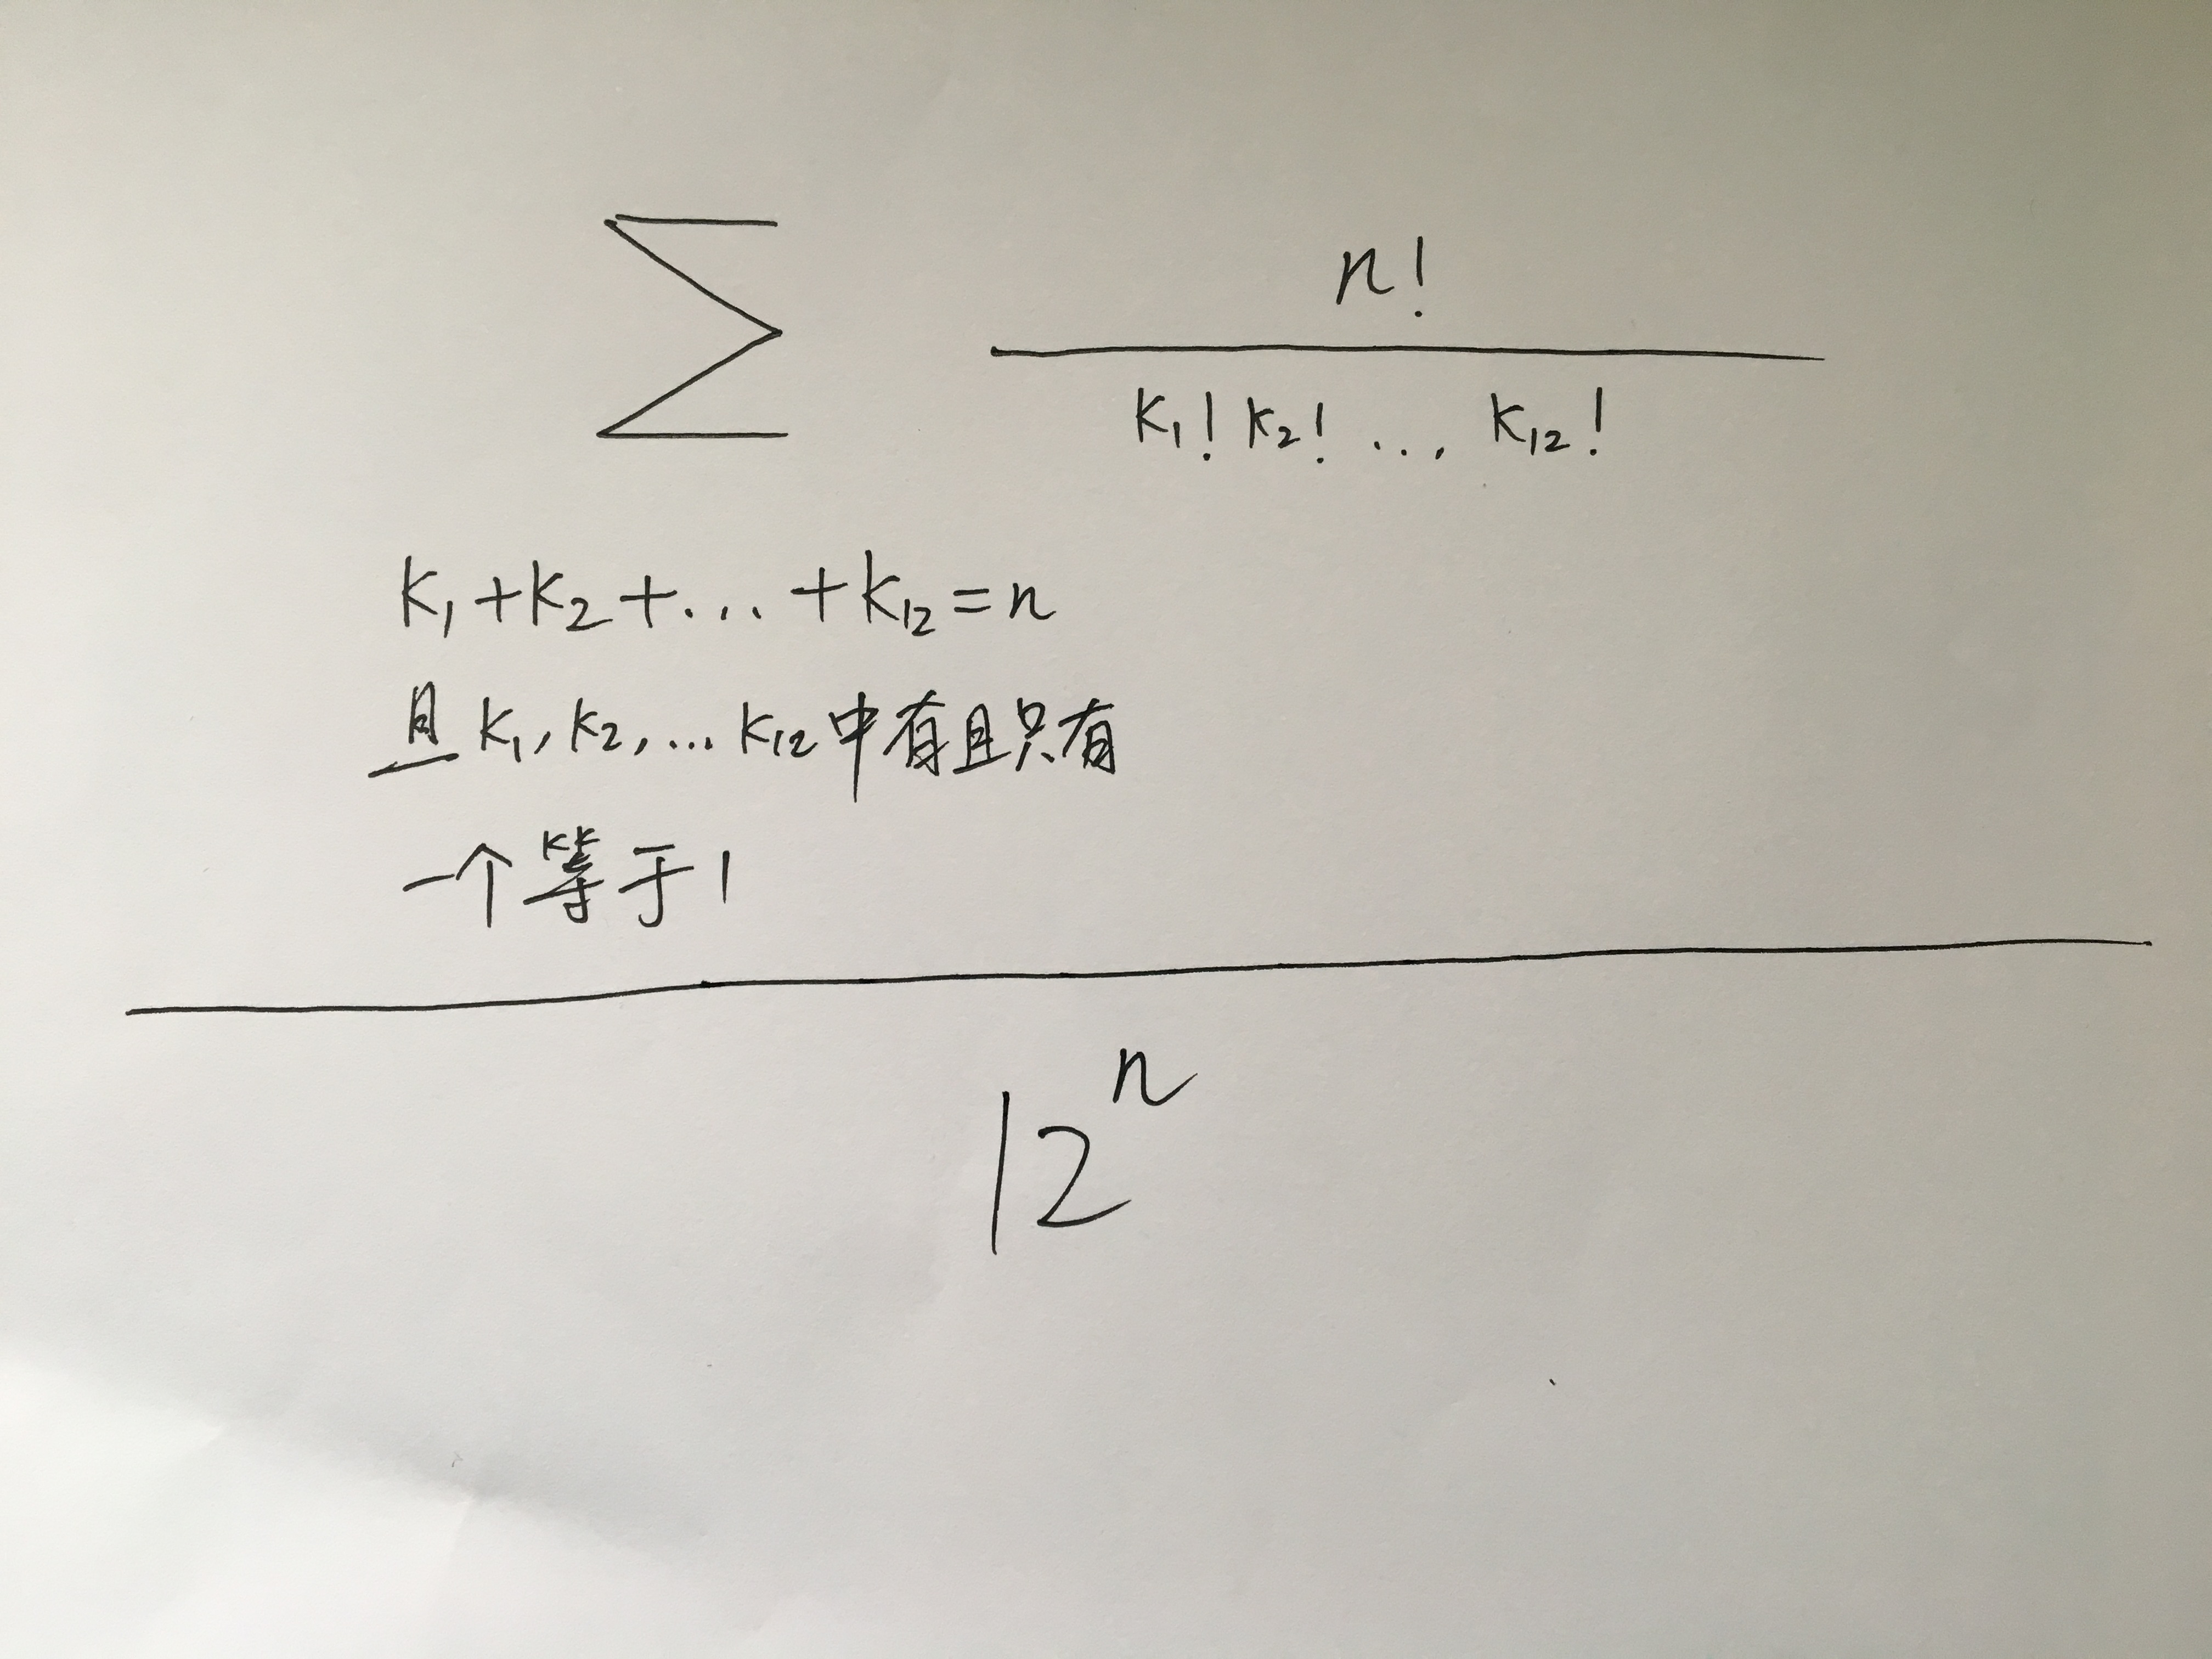 ∑ n!
k₁! k₂! ... k₁₂!
k₁+k₂+...+k₁₂=n
且k₁,k₂,...k₁₂中有且只有
一个等于1
12ⁿ